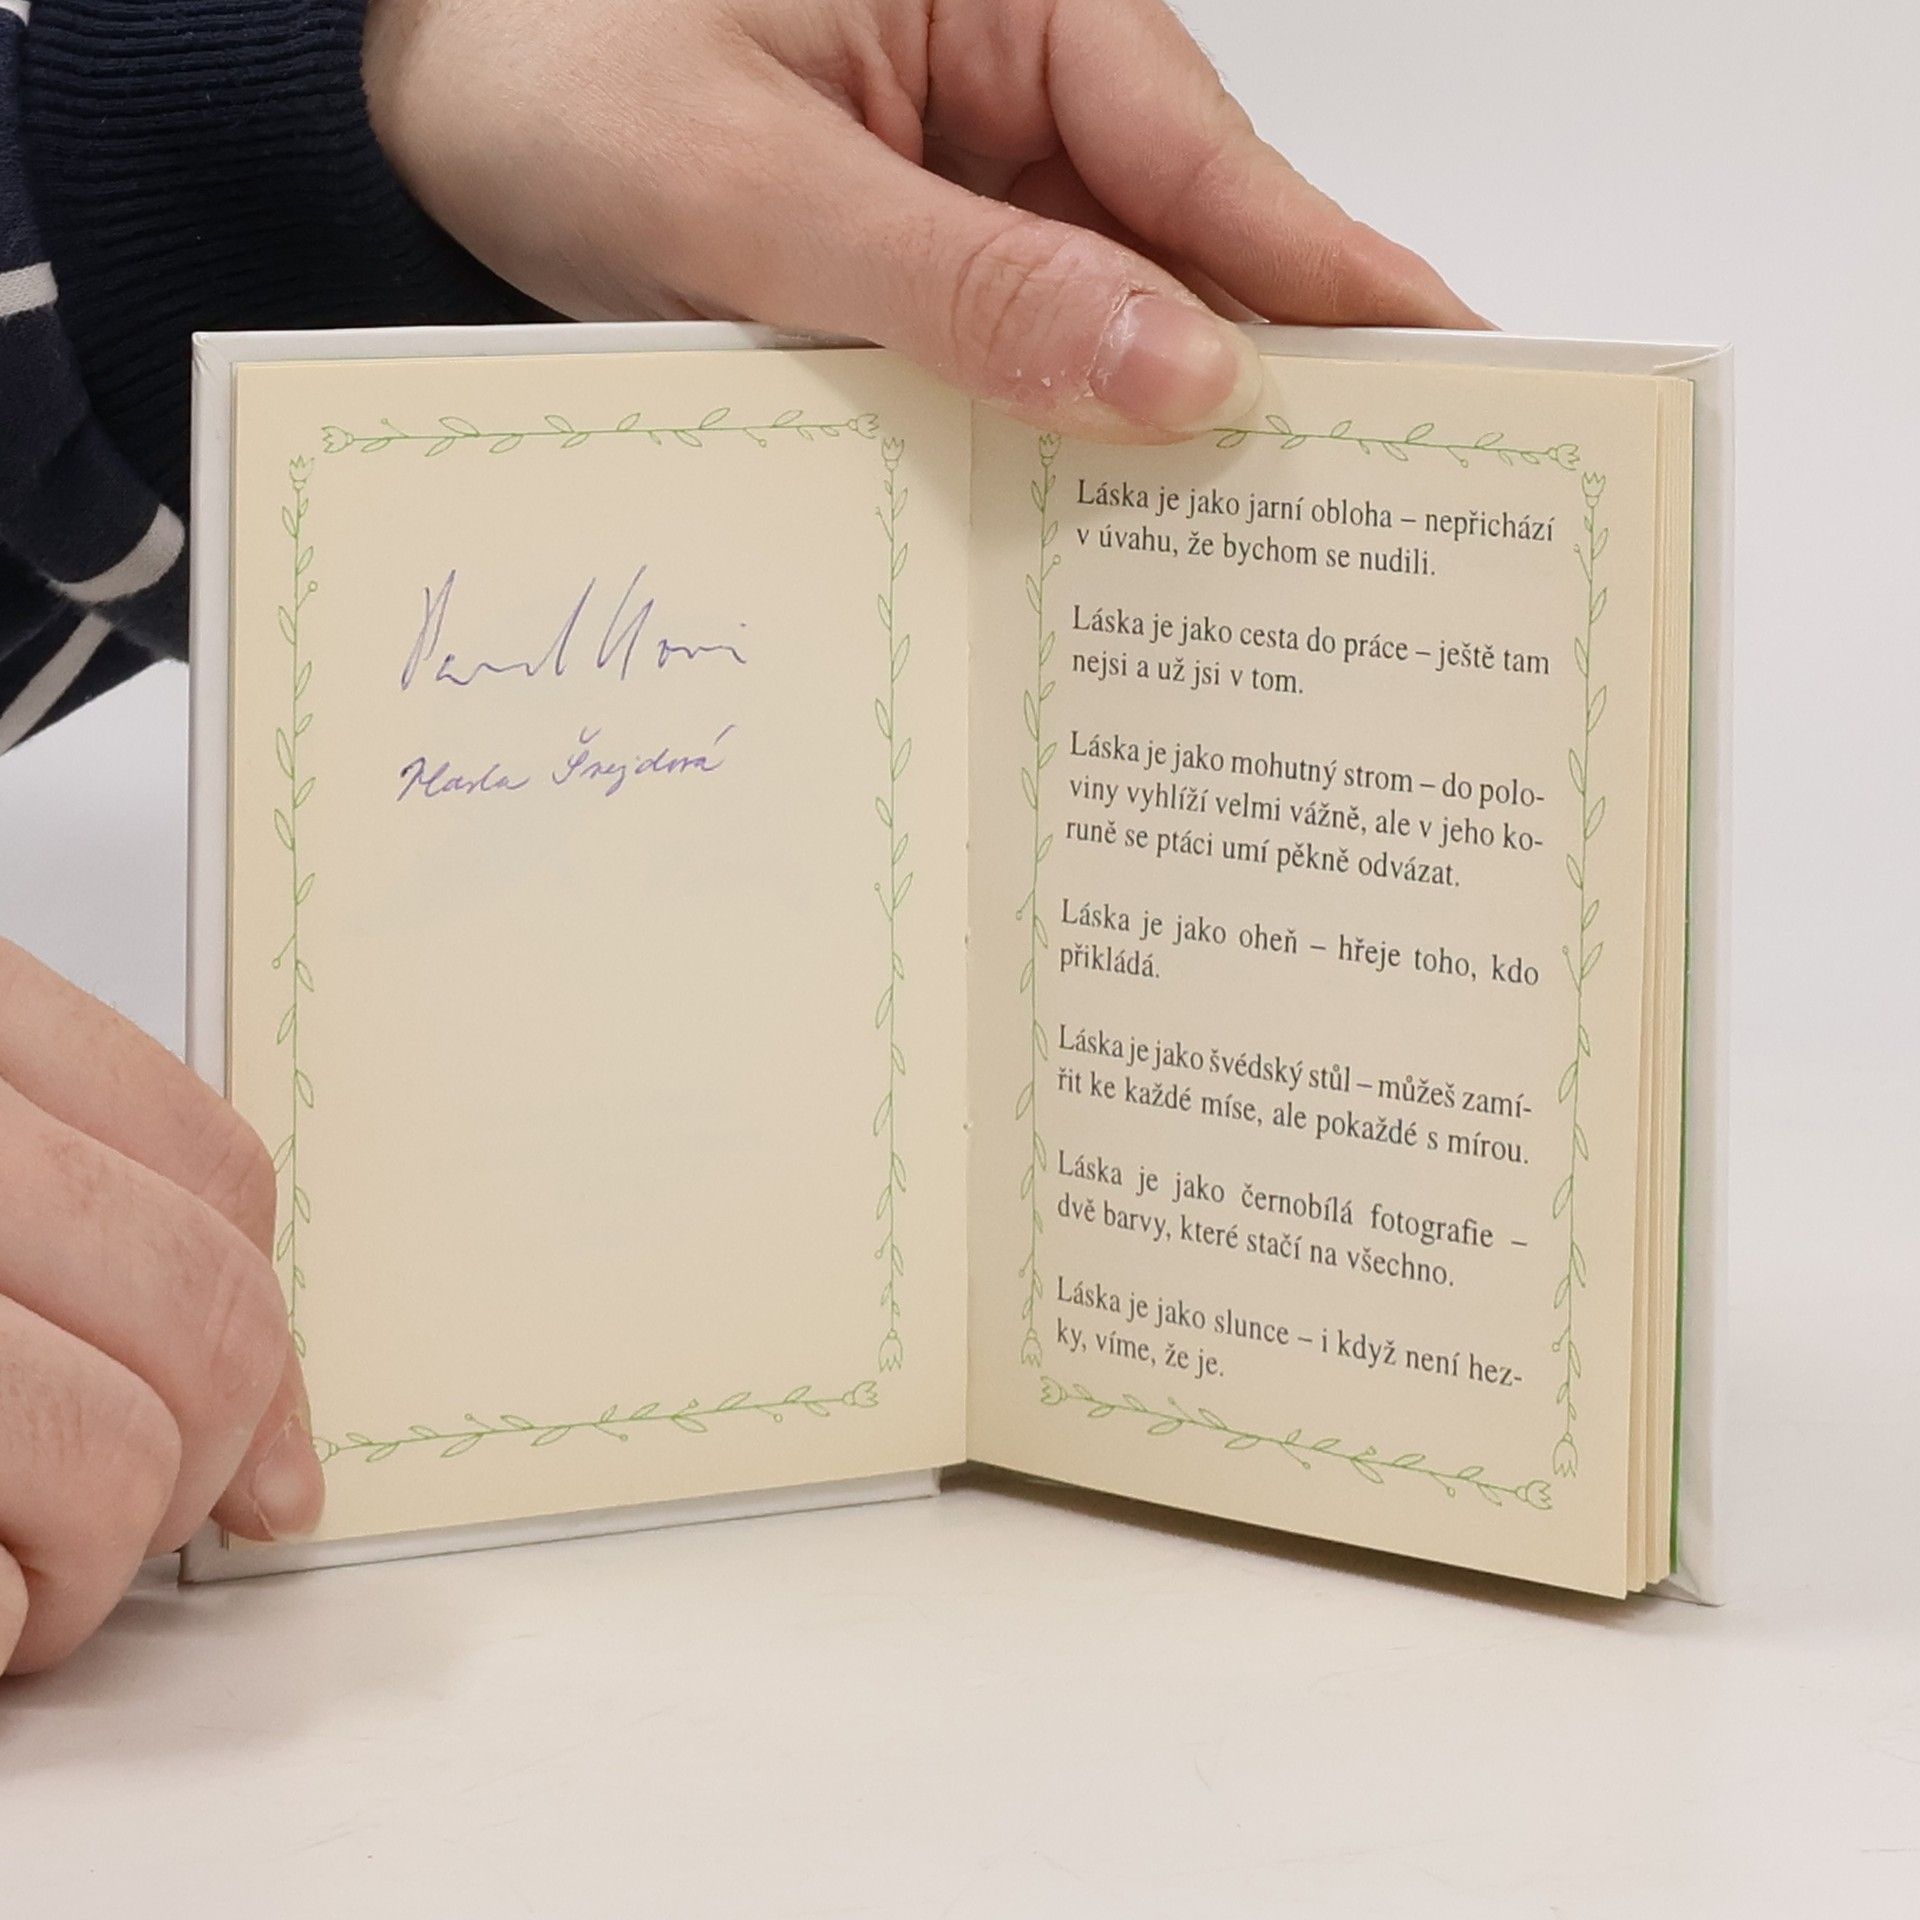 Pavel Kovi
Marka Šnejdová
Láska je jako jarní obloha – nepřichází
v úvahu, že bychom se nudili.
Láska je jako cesta do práce – ještě tam
nejsi a už jsi v tom.
Láska je jako mohutný strom – do polo-
viny vyhlíží velmi vážně, ale v jeho ko-
runě se ptáci umí pěkně odvázat.
Láska je jako oheň – hřeje toho, kdo
přikládá.
Láska je jako švédský stůl – můžeš zamí-
řit ke každé míse, ale pokaždé s mírou.
Láska je jako černobílá fotografie –
dvě barvy, které stačí na všechno.
Láska je jako slunce – i když není hez-
ky, víme, že je.